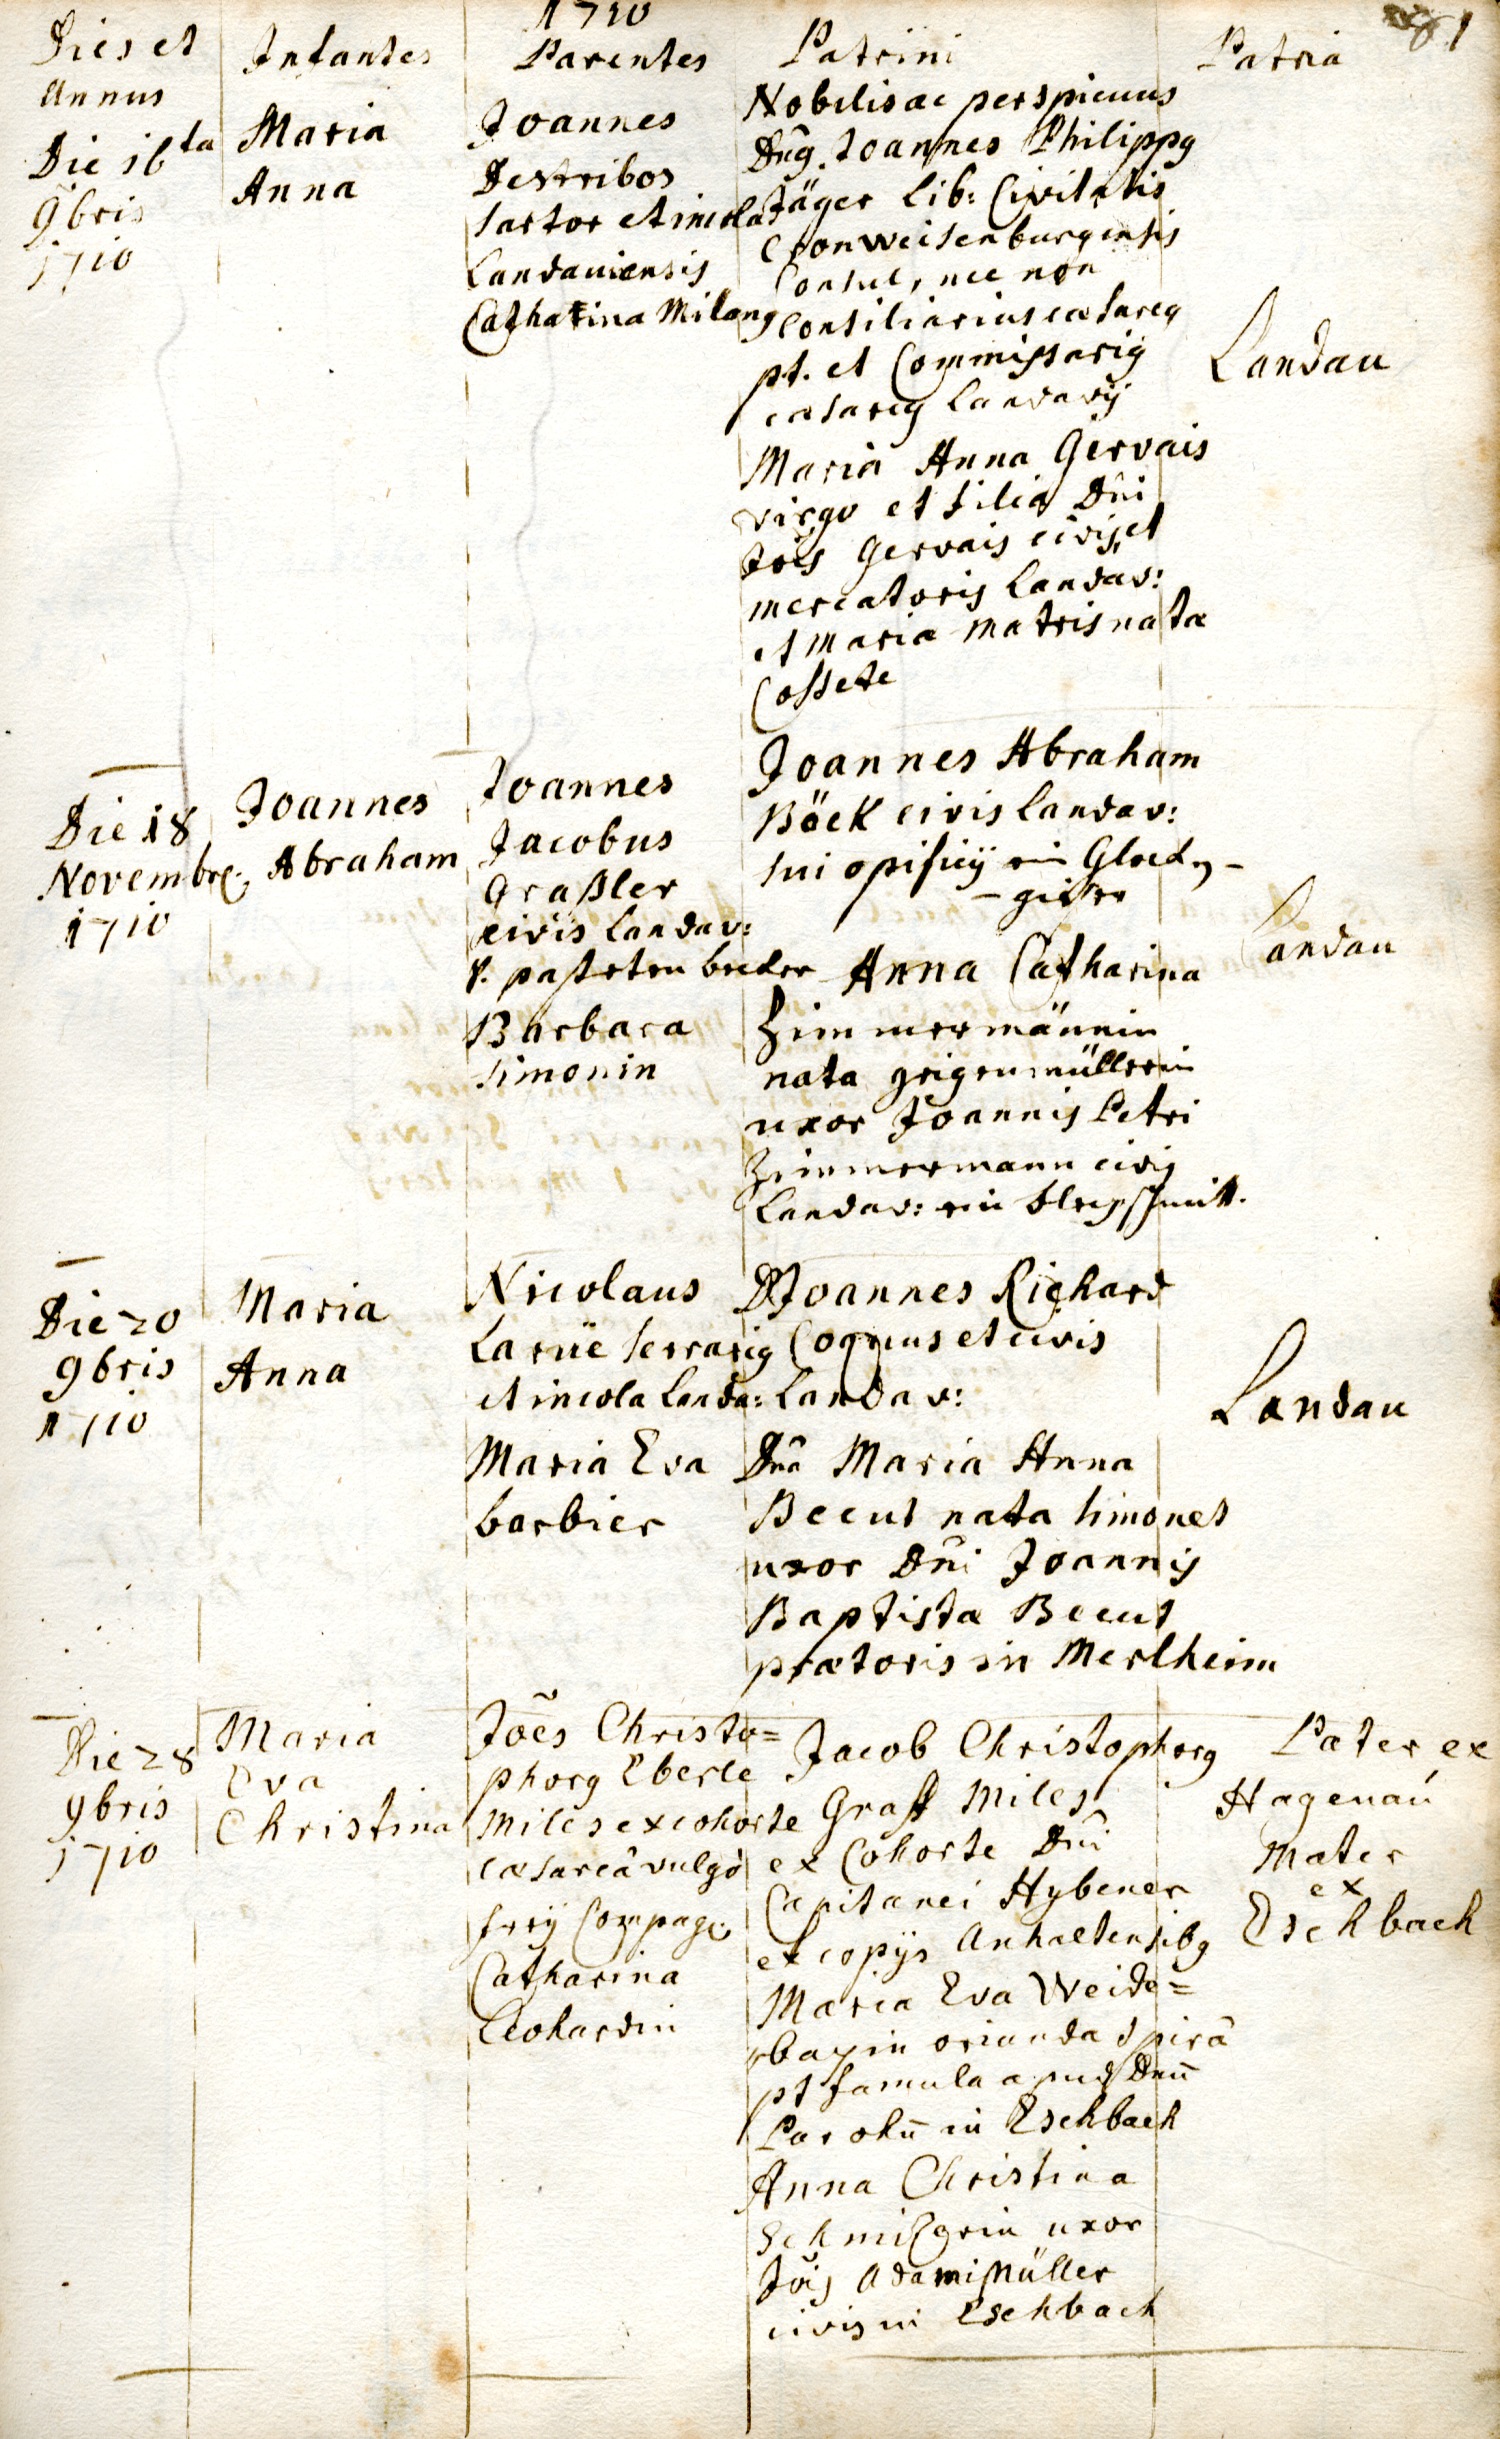 1710
81
Dies et
Annus
Infantes
Parentes
Patrini
Patria
Die 16ta
9bris
1710
Maria
Anna
Joannes
Destribos
sartor et incola
Landauiensis
Catharina Milang
Nobilis ac perspicuus
Dn̄9 Joannes Philipp9
Jäger lib: Civitatis
Cronweisenburgensis
Consul, nec non
Consiliarius caesare9
pt. et Commissari9
caesare9 Landavij
Maria Anna Gervais
virgo et filia Dn̄i
Jōis Gervais civis et
mercatoris Landav:
et Maria matris nata
Cossete
Landau
Die 18
Novembr:
1710
Joannes
Abraham
Joannes
Jacobus
Graßler
civis Landav:
pasteten becker
Barbara
Simonin
Joannes Abraham
Böck civis Landav:
sui opificij ein Glock-
-gießer
Anna Catharina
Zimmermännin
nata geigenmüllerin
uxor Joannis Petri
Zimmermann civis
Landav: ein
Landau
Die 20
9bris
1710
Maria
Anna
Nicolaus
Larüe serrari9
et incola Landa:
Maria Eva
barbier
D Joannes Richard
Coquus et civis
Landav:
Dn̄a Maria Anna
Becut nata Simonet
uxor Dn̄i Joannis
Baptistæ Becut
prætoris in Merlheim
Landau
Die 28
9bris
1710
Maria
Eva
Christina
Jōes Christo=
phor9 Eberle
Miles ex cohorte
cæsareâ vulgò
frey Compag:
Catharina
Leohardin
Jacob Christophor9
Graff Miles
ex Cohorte Dn̄i
Capitanei Hybener
ex copijs Anhaltensib9
Maria Eva Weide=
orianda Spirâ
pt famula apud Dnū
Parohū in Eschbach
Anna Christina
uxor
Jōis Adami Müller
civis in Eschbach
Pater ex
Hagenau
Mater
ex
Eschbach